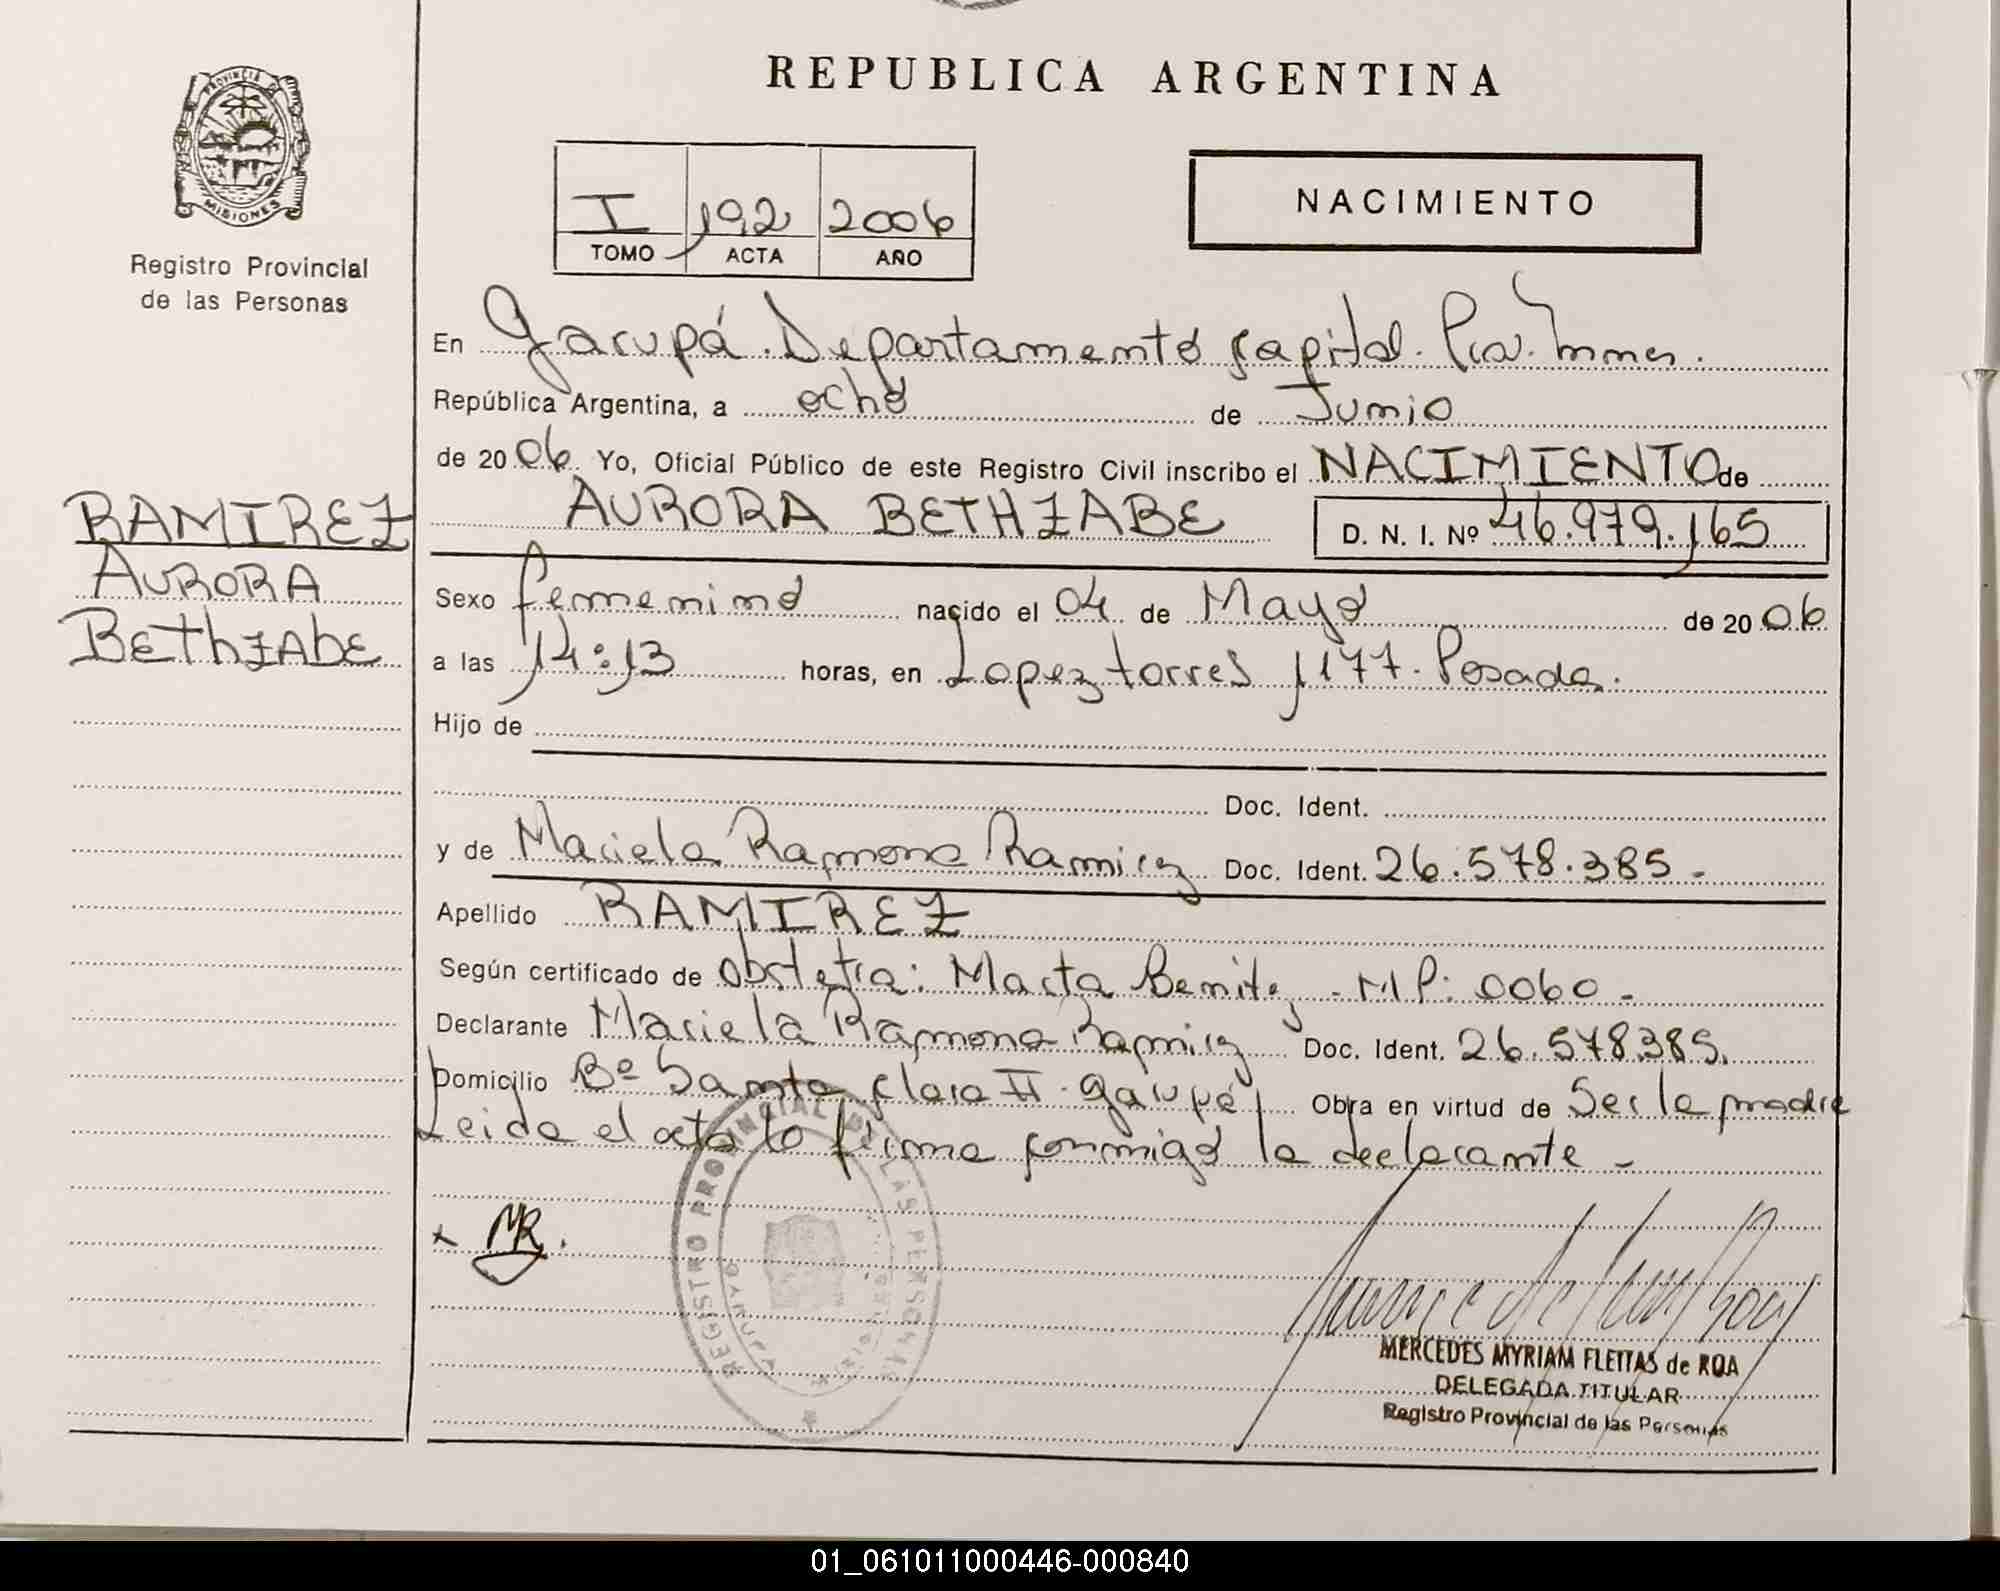 REPUBLICA ARGENTINA
PROVINCIA DE MISIONES
Registro Provincial
de las Personas
I 192 2006
TOMO ACTA AÑO
NACIMIENTO
En Garupá. Departamento Capital.
República Argentina, a ocho de Junio
de 2006. Yo, Oficial Público de este Registro Civil inscribo el NACIMIENTO de
AURORA BETHZABE D. N. I. Nº 46.979.165
RAMIREZ
AURORA
BEthzAbE
Sexo femenino nacido el 04 de Mayo de 2006
a las 14:13 horas, en Lopez torres 1177. Posadas.
Hijo de
Doc. Ident.
y de Mariela Ramona Ramirez Doc. Ident. 26.578.385.-
Apellido RAMIREZ
Según certificado de obstetra: Marta Benitez - MP: 0060-
Declarante Mariela Ramona Ramirez Doc. Ident. 26.578.385.
Domicilio Bº Santa Clara II. Garupá Obra en virtud de Ser la madre
Leida el acta la firma conmigo la declarante-
x MR.
REGISTRO PROVINCIAL DE LAS PERSONAS
MERCEDES MYRIAM FLEITAS de ROA
DELEGADA TITULAR
Registro Provincial de las Personas
01_061011000446-000840